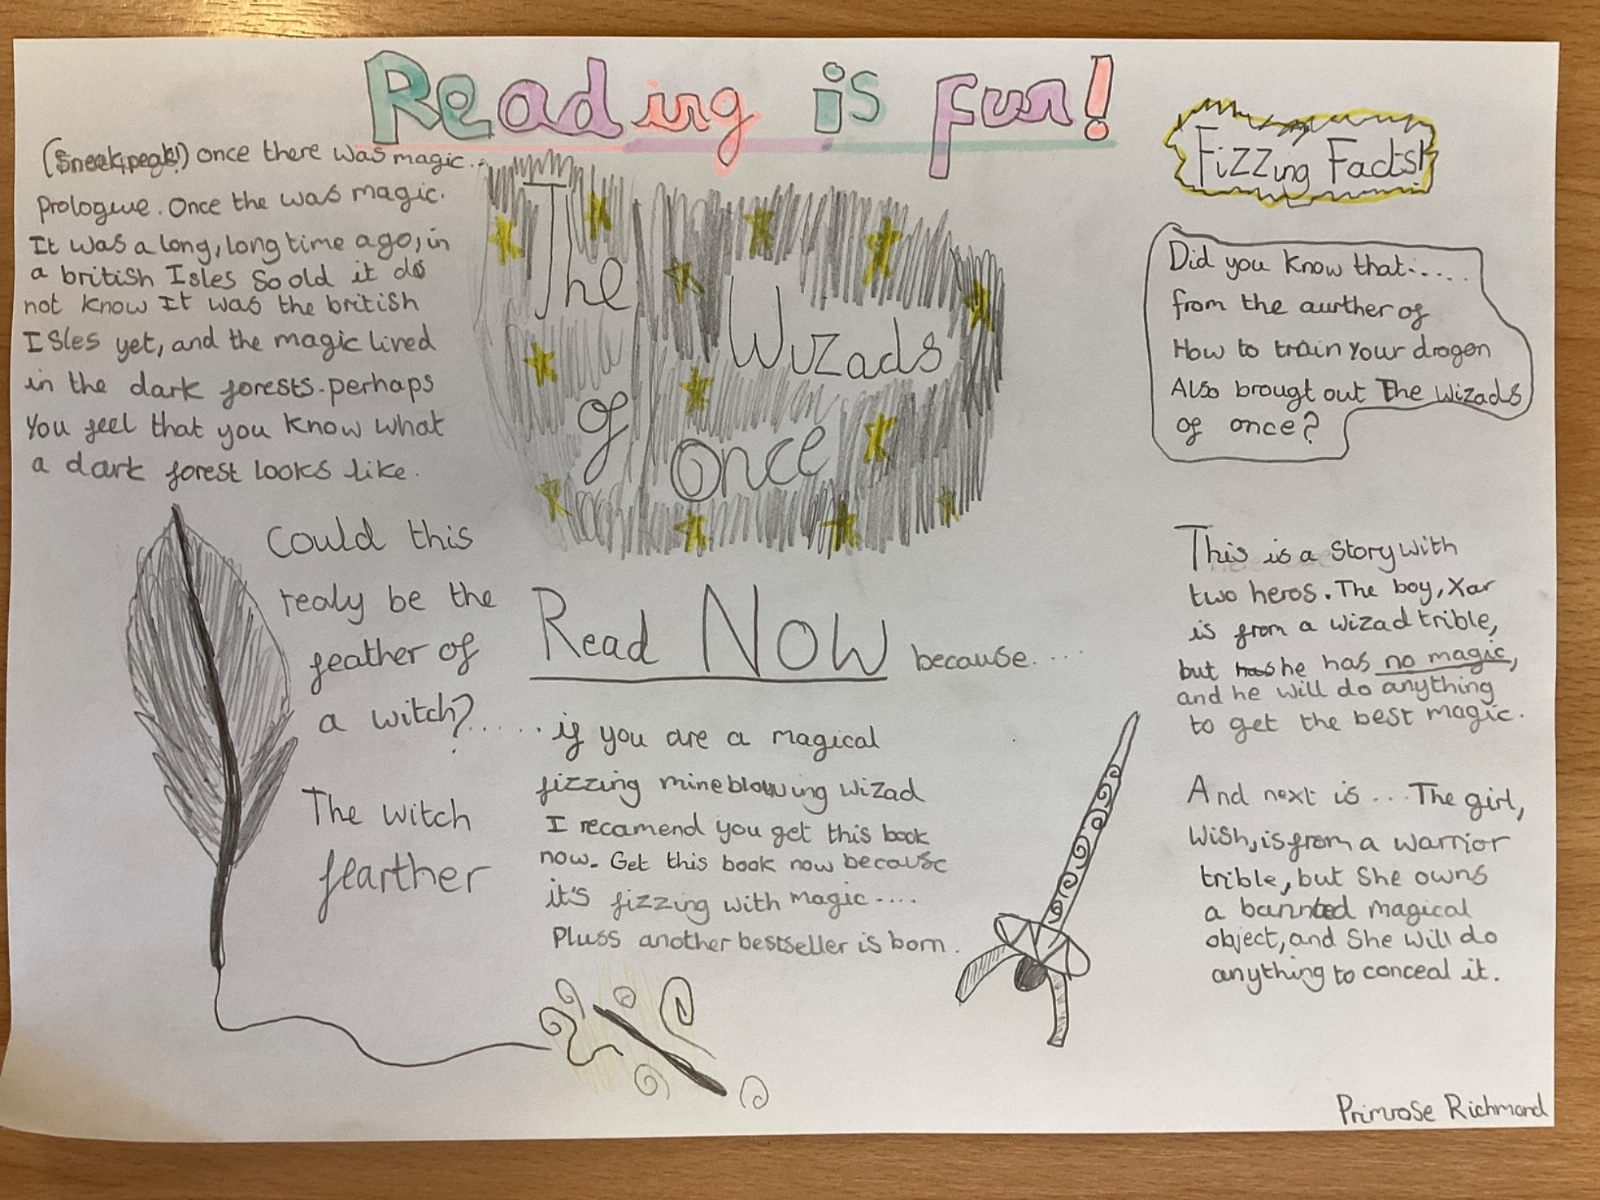 Reading is fun!
(Sneekpeak!) once there was magic...
Prologue. Once the was magic.
It was a long, long time ago, in
a british Isles so old it do
not know It was the british
Isles yet, and the magic lived
in the dark forests. perhaps
You feel that you know what
a dark forest looks like.
The Wizads
of once
Fizzing Facts!
Did you know that.....
from the aurther of
How to train Your dragen
Also brougt out The Wizads
of once?
Could this
realy be the
feather of
a witch?
The witch
fearther
Read NOW because....
......if you are a magical
fizzing mineblowing wizad
I recamend you get this book
now. Get this book now because
it's fizzing with magic....
Pluss another bestseller is born.
This is a Story with
two heros. The boy, Xar
is from a wizad trible,
but has he has no magic,
and he will do anything
to get the best magic.
And next is... The girl,
Wish, is from a warrior
trible, but She owns
a bannted magical
object, and She will do
anything to conceal it.
Primrose Richmond